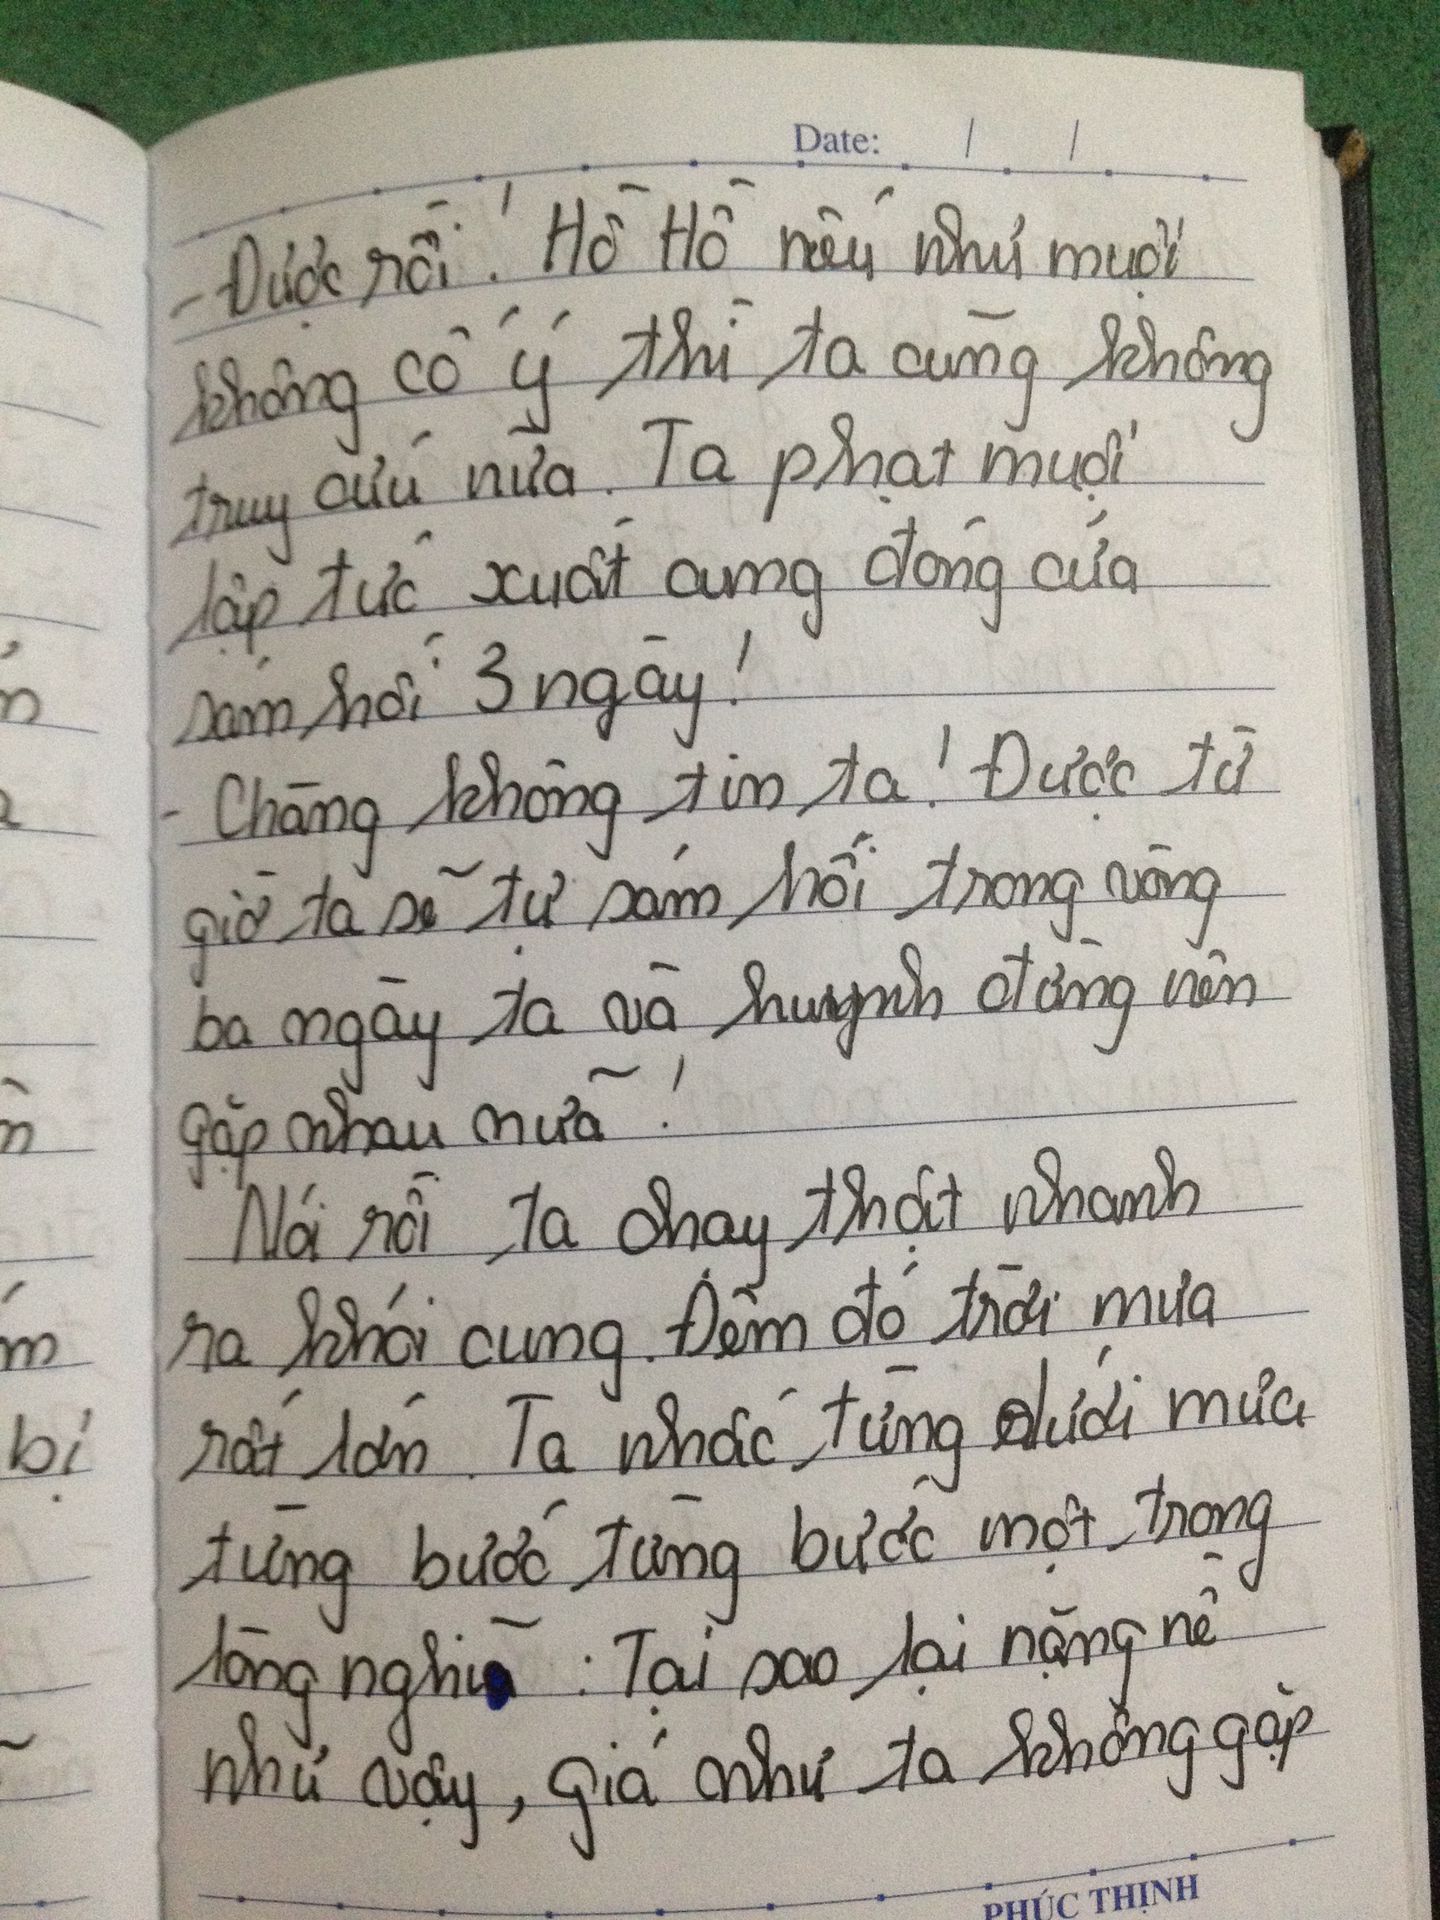 Date: / /
- Được rồi! Hồ Hồ nếu như muội
không cố ý thì ta cũng không
truy cứu nữa. Ta phạt muội
lập tức xuất cung đóng cửa
sám hối 3 ngày!
- Chàng không tin ta! Được từ
giờ ta sẽ tự sám hối trong vòng
ba ngày ta và huynh đừng nên
gặp nhau nữa!
Nói rồi ta chạy thật nhanh
ra khỏi cung. Đêm đó trời mưa
rất lớn. Ta nhấc từng dưới mưa
từng bước từng bước một trong
lòng nghĩ : Tại sao lại nặng nề
như vậy, giá như ta không gặp
PHÚC THỊNH
n
a
n
m
bị